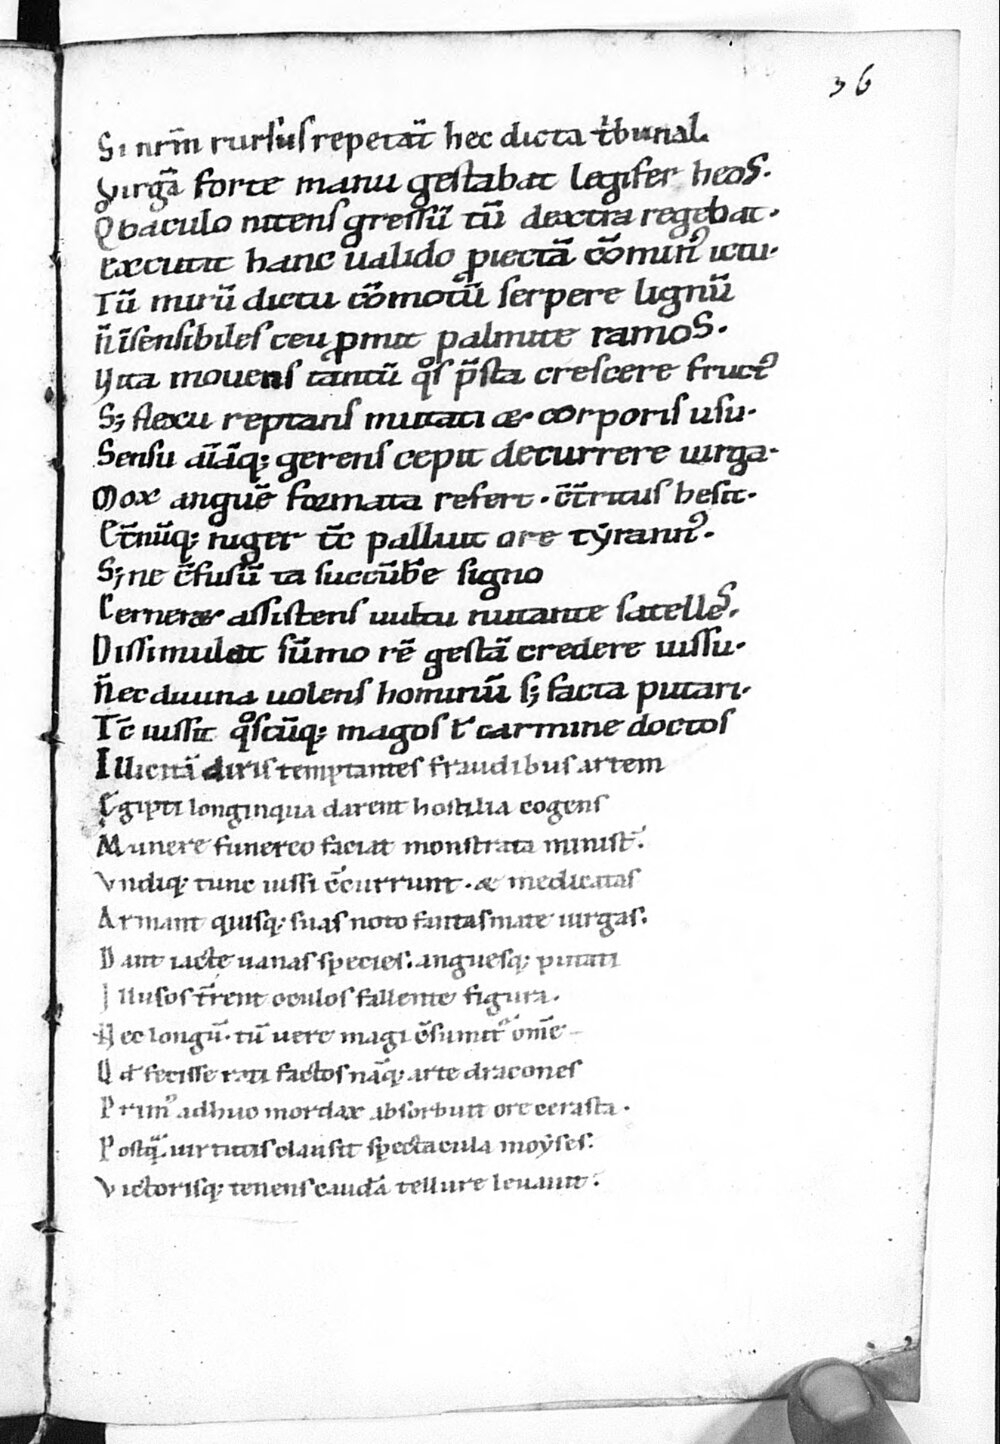 36
Si nrm̄ rursus repetat̄ hec dicta tͥbunal.
Virgā forte manu gestabat legifer heos.
Q baculo nitens gressū tū dextra regebat.
Excutit hanc ualido ꝓiectā cōminꝰ ictu.
Tū mirū dictu cōmotū serpere lignū
N̄ īsensibiles ceu ꝓmit palmite ramos.
Vita mouens tantū qͦs p̄sta crescere fructꝰ
S; flexu reptans mutati æ corporis usu.
Sensu aīāq; gerens cepit decurrere uirga.
Mox anguē formata refert. c̄tritus hesit.
Ct̄nūq; niger tc̄ palluit ore tẏrannꝰ.
S; ne c̄fusū ta succūbe signo
Cerneræ assistens uultu nutante satelles.
Dissimulat sūmo rē gestā credere uissu.
Nec diuina uolens hominū s; facta putari.
Tc̄ iussit qͦscūq; magos t͛ carmine doctos
Illicitā diris temptantes fraudibus artem
Egipti longinqua darent hostilia cogens
Munere funereo faciat monstrata minist͛.
Vndiq; tunc iussi c̄currunt. æ medicatas
Armant quisq; suas noto fantasmate uirgas.
Dant iacte uanas species. anguesq; putati
Illusos t͛rent oculos fallente figura.
Nec longū. tū uere magi c̄sumitꝰ omē
Qd fecisse rati factos nāq; arte dracones
Primꝰ adhuo mordax absorbuit ore cerasta.
Postq̄ uirtutis clausit spectacula moẏses.
Victorisq; tenens caudā tellure leuauit.